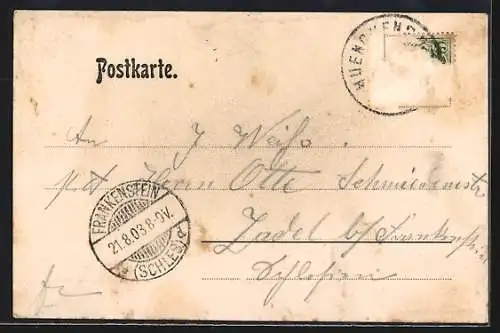 Postkarte.
MUENCHEN
An J. Weiß
ptt Herrn Otte Schmiedemstr
Zadel b/ Frankenstein
Schlesien
FRANKENSTEIN
21.8.03.8-9V.
(SCHLES.) d